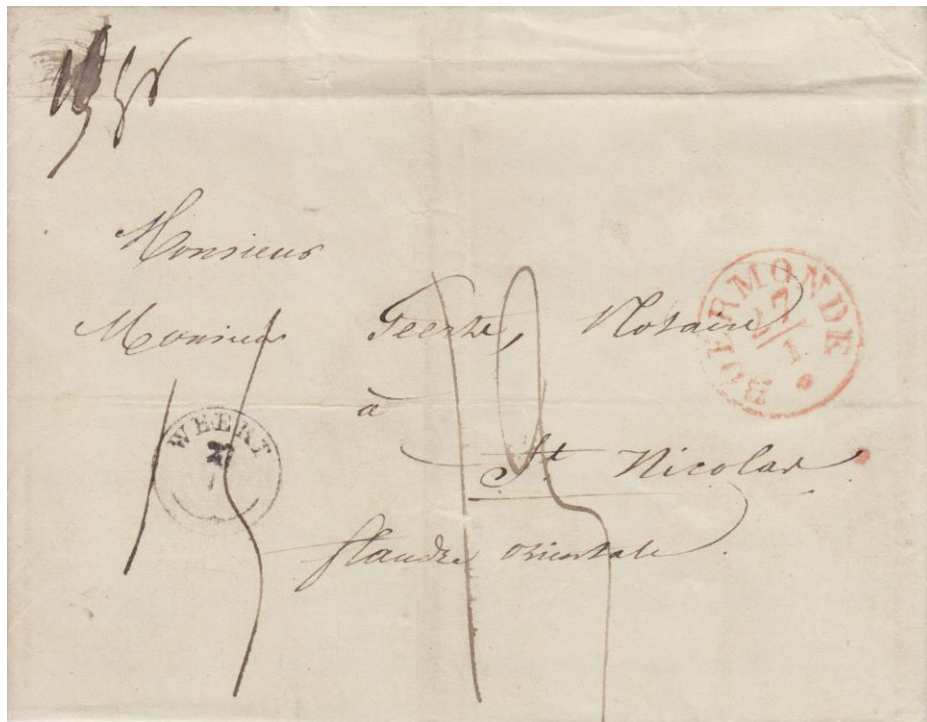 Monsieur
Monsieur Geerts, Notaire
à
St Nicolas
flandre orientale
ROERMONDE
27
1
WEERT
27
1